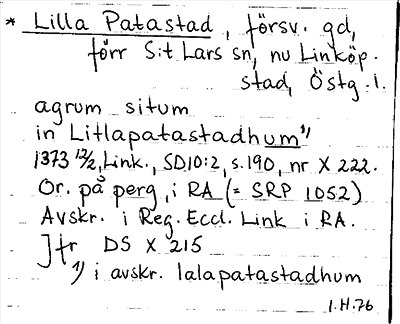 * Lilla Patastad, försv. gd,
förr S:t Lars sn, nu Linköp.
stad, Östg. l.
agrum situm
in Litlapatastadhum 1)
1373 12/2, Link., SD10:2, s.190, nr X 222.
Or. på perg, i RA (= SRP 1052)
Avskr. i Reg. Eccl. Link i RA.
] fr DS X 215
1) i avskr. lalapatastadhum
I.H.76